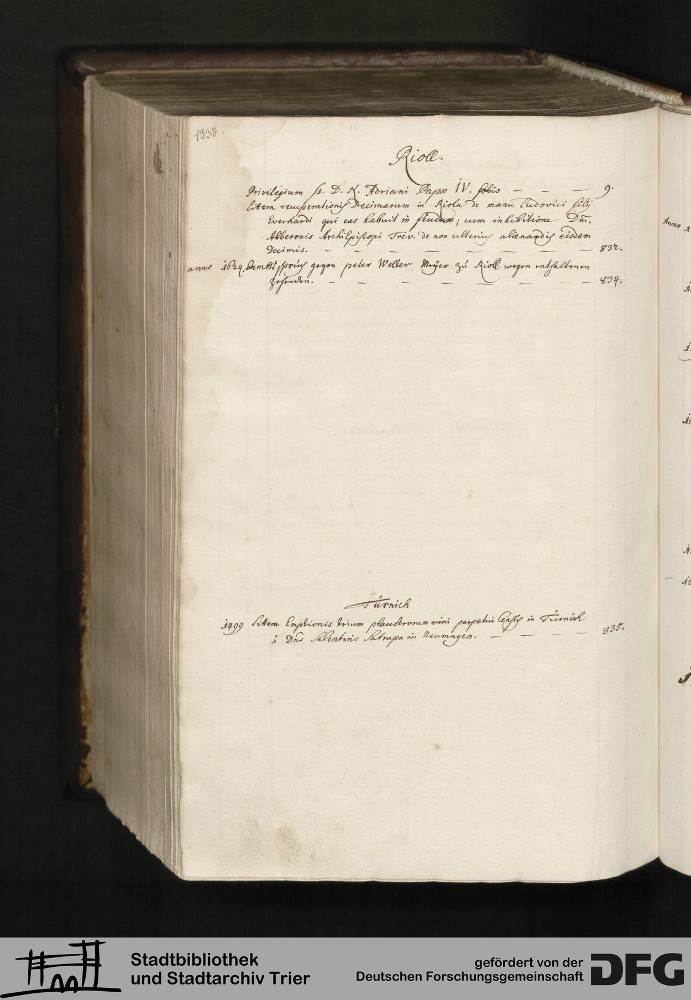 1338
Rioll.
Privilegium SS. D. N. Adriani Papæ IV. folio — — — 9.
Litteræ recuperationis Decimarum in Riola de manu Ludovici filij
Everhardi qui eas habuit in feudum; cum inhibitione Dñi
Alberonis Archiepiscopi Trev. de non ulterius alienandis eisdem
Decimis. — — — — — — — 832.
anno 1624. Amtsspruch gegen peter Weller Meyer zu Rioll wegen enthaltenen
Zehenden. — — — — — — — 834.
Türnich
1499 Litteræ Emptionis trium plaustrorum vini perpetui Census in Türnich
à Dño Salentino Satrapa in Neumagen. — — — — 835.
Anno
Stadtbibliothek
und Stadtarchiv Trier
gefördert von der
Deutschen Forschungsgemeinschaft
DFG